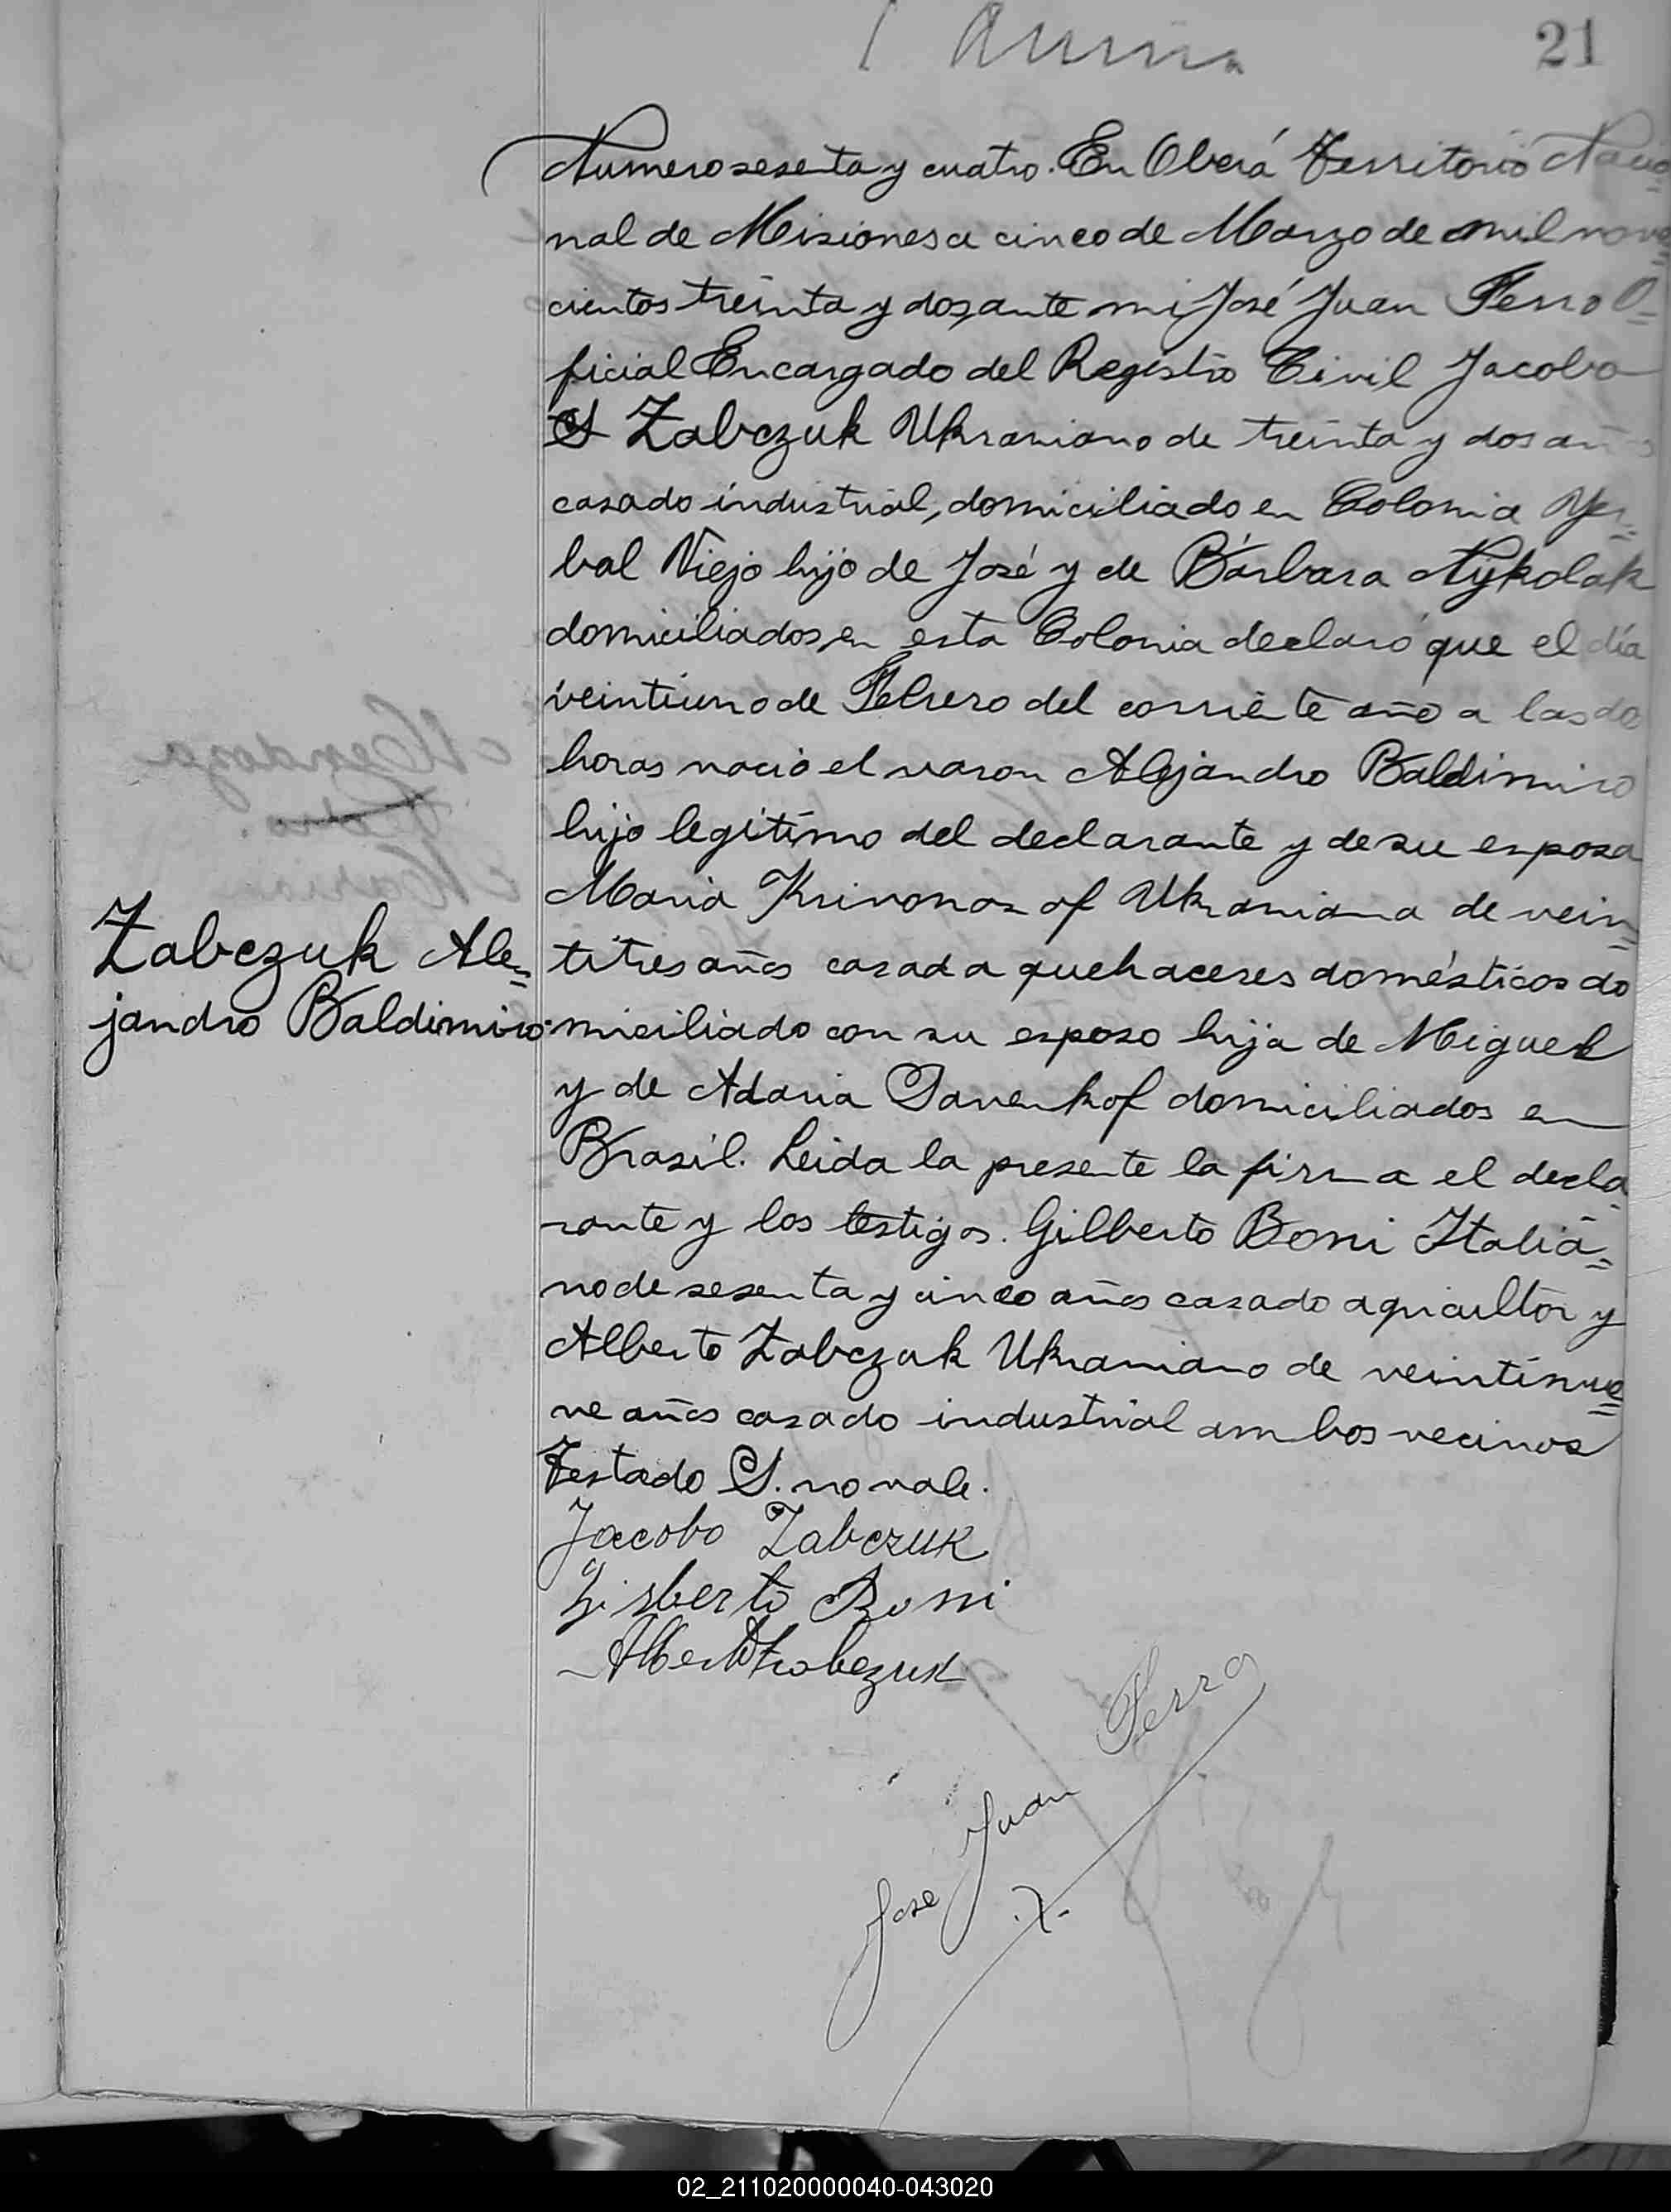 21
Numero sesenta y cuatro. En Oberá Territorio Nacio=
nal de Misiones a cinco de Marzo de mil nove=
cientos treinta y dos, ante mi José Juan Ferro O=
ficial Encargado del Registro Civil Jacobo
S Zabczuk Ukraniano de treinta y dos años
casado industrial, domiciliado en Colonia Yer=
bal Viejo hijo de José y de Bárbara Nykolak
domiciliados en esta Colonia declaró que el día
veintiuno de Febrero del corriente año a las do
horas nació el varon Alejandro Baldimiro
hijo legítimo del declarante y de su esposa
Maria Krivonos of Ukraniana de vein=
titres años casada quehaceres domésticos do
miciliado con su esposo hija de Miguel
y de Adaria Savenkof domiciliados en
Brasil. Leida la presente la firma el decla=
rante y los testigos. Gilberto Boni Italia=
no de sesenta y cinco años casado agricultor y
Alberto Zabczuk Ukraniano de veintinue=
ve años casado industrial ambos vecinos
Testado S. no vale.
Zabczuk Ale=
jandro Baldimiro
Jacobo Zabczuk
Gisberto Boni
Alberto Zabczuk
José Juan Ferro
02_211020000040-043020